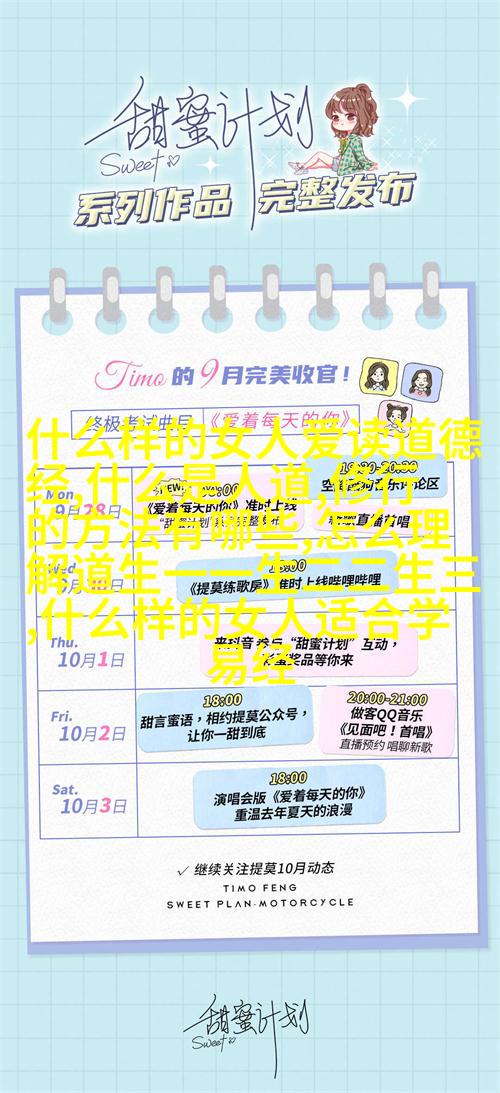 甜蜜计划
Sweet
系列作品 完整发布
Timo的9月完美收官!
终极考试曲目 《爱着每天的你》
什么样的女人爱读道德
经,什么是人道
的方法有哪些,怎么理
解道生一一生二二生三
,什么样的女人适合学
易经
Mon.
9月28日
NEW
《爱着每天的你》准时上线
19:30-20:30
Wed.
《提莫练歌房》准时上线哔哩哔哩
Thu.
10月1日
来抖音 参与“甜蜜计划”互动,
彩蛋奖品等你来
Fri.
10月2日
18:00
甜言蜜语,相约提莫公众号,
让你一甜到底
20:00-21:00
做客QQ音乐
《见面吧!首唱》
直播预约 唱聊新歌
Sat.
10月3日
18:00
演唱会版《爱着每天的你》
重温去年夏天的浪漫
✓ 继续关注提莫10月动态
TIMO FENG
SWEET PLAN-MOTORCYCLE
甜蜜计划
Sweet